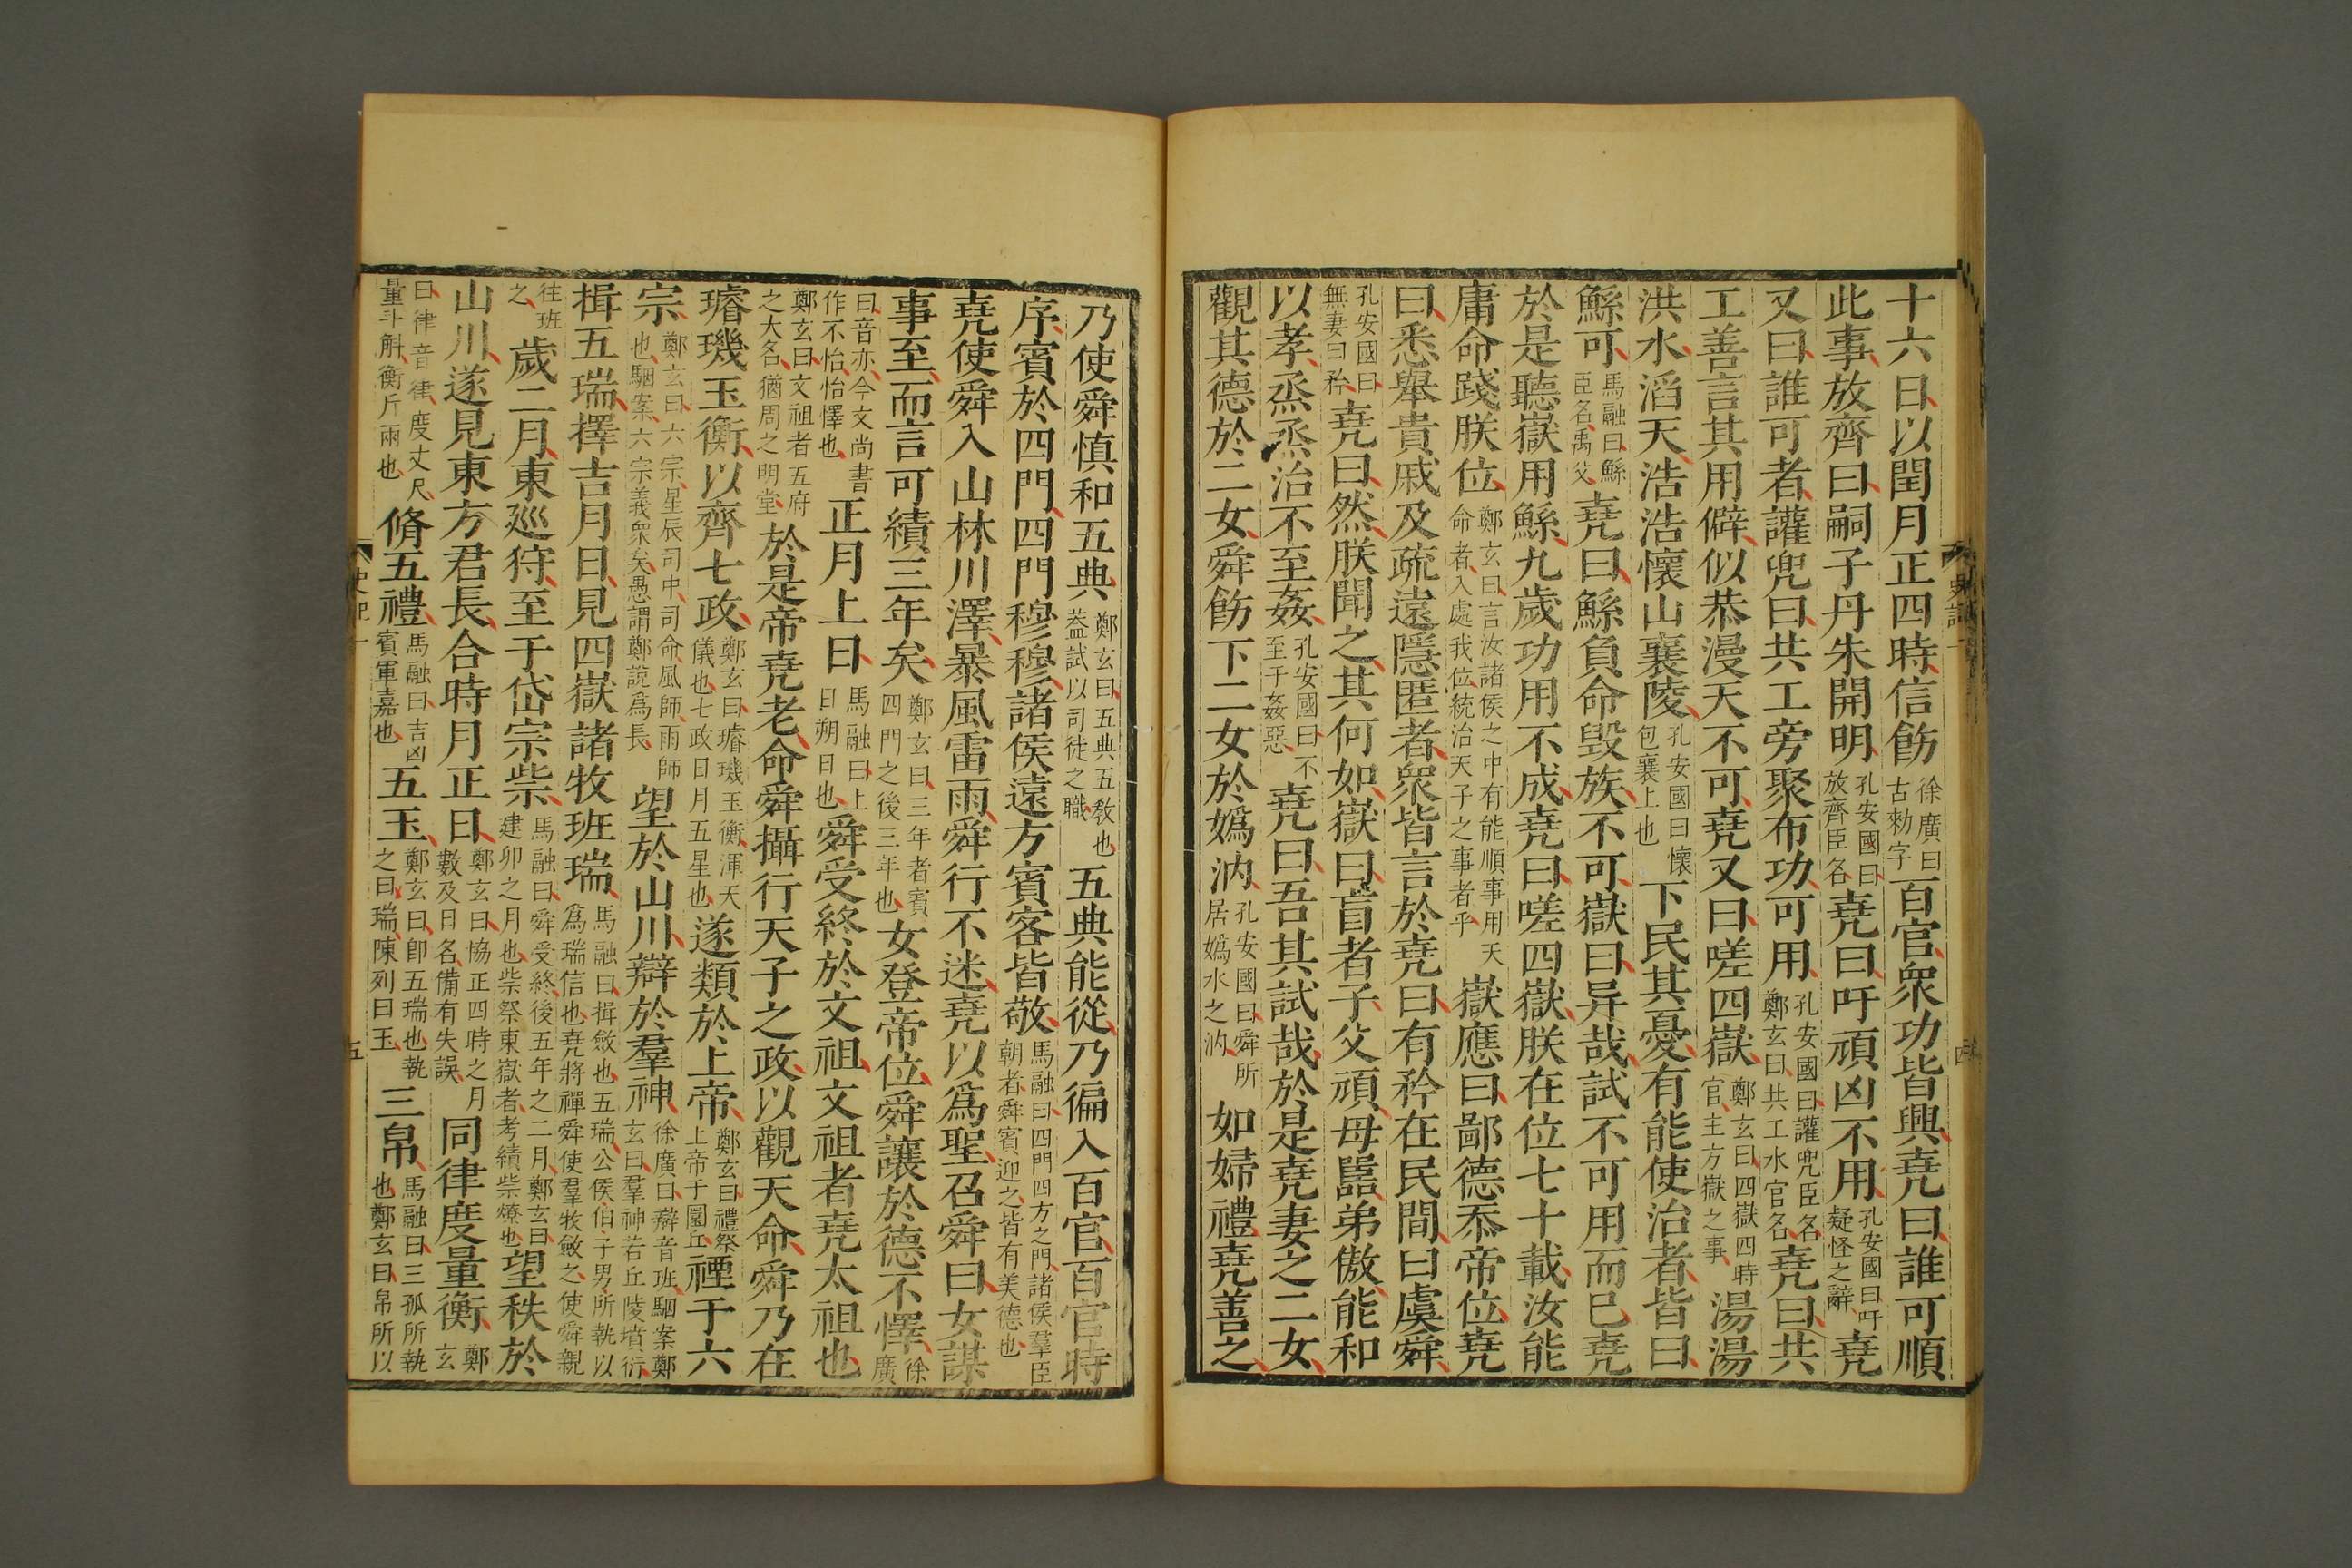 十六日以閏月正四時信飭徐廣曰古勑字百官衆功皆興堯曰誰可順
此事放齊曰嗣子丹朱開明孔安國曰放齊臣名堯曰吁頑凶不用孔安國曰吁疑怪之辭堯
又曰誰可者讙兜曰共工旁聚布功可用孔安國曰讙兜臣名鄭玄曰共工水官名堯曰共
工善言其用僻似恭漫天不可堯又曰嗟四嶽鄭玄曰四嶽四時官主方嶽之事湯湯
洪水滔天浩浩懷山襄陵孔安國曰懷包襄上也下民其憂有能使治者皆曰
鯀可馬融曰鯀臣名禹父堯曰鯀負命毀族不可嶽曰异哉試不可用而已堯
於是聽嶽用鯀九歲功用不成堯曰嗟四嶽朕在位七十載汝能
庸命踐朕位鄭玄曰言汝諸侯之中有能順事用天命者入處我位統治天子之事者乎嶽應曰鄙德忝帝位堯
曰悉舉貴戚及疏遠隱匿者衆皆言於堯曰有矜在民間曰虞舜
孔安國曰無妻曰矜堯曰然朕聞之其何如嶽曰盲者子父頑母嚚弟傲能和
以孝烝烝治不至姦孔安國曰不至于姦惡堯曰吾其試哉於是堯妻之二女
觀其德於二女舜飭下二女於嬀汭孔安國曰舜所居嬀水之汭如婦禮堯善之
史記一
四
乃使舜慎和五典鄭玄曰五典五教也葢試以司徒之職五典能從乃徧入百官百官時
序賓於四門四門穆穆諸侯遠方賓客皆敬馬融曰四門四方之門諸侯羣臣朝者舜賓迎之皆有美德也
堯使舜入山林川澤暴風雷雨舜行不迷堯以爲聖召舜曰女謀
事至而言可績三年矣鄭玄曰三年者賓四門之後三年也女登帝位舜讓於德不懌徐廣
曰音亦今文尚書作不怡怡懌也正月上日馬融曰上日朔日也舜受終於文祖文祖者堯太祖也
鄭玄曰文祖者五府之大名猶周之明堂於是帝堯老命舜攝行天子之政以觀天命舜乃在
璿璣玉衡以齊七政鄭玄曰璿璣玉衡渾天儀也七政日月五星也遂類於上帝鄭玄曰禮祭上帝于圜丘禋于六
宗鄭玄曰六宗星辰司中司命風師雨師也駰案六宗義衆矣愚謂鄭說爲長望於山川辯於羣神徐廣曰辯音班駰案鄭玄曰羣神若丘陵墳衍
揖五瑞擇吉月日見四嶽諸牧班瑞馬融曰揖斂也五瑞公侯伯子男所執以爲瑞信也堯將禪舜使羣牧斂之使舜親
往班之歲二月東廵狩至于岱宗祡馬融曰舜受終後五年之二月鄭玄曰建卯之月也祡祭東嶽者考績祡燎也望秩於
山川遂見東方君長合時月正日鄭玄曰協正四時之月數及日名備有失誤同律度量衡鄭玄
曰律音律度丈尺量斗斛衡斤兩也脩五禮馬融曰吉凶賓軍嘉也五玉鄭玄曰卽五瑞也執之曰瑞陳列曰玉三帛馬融曰三孤所執也鄭玄曰帛所以
史記一
五